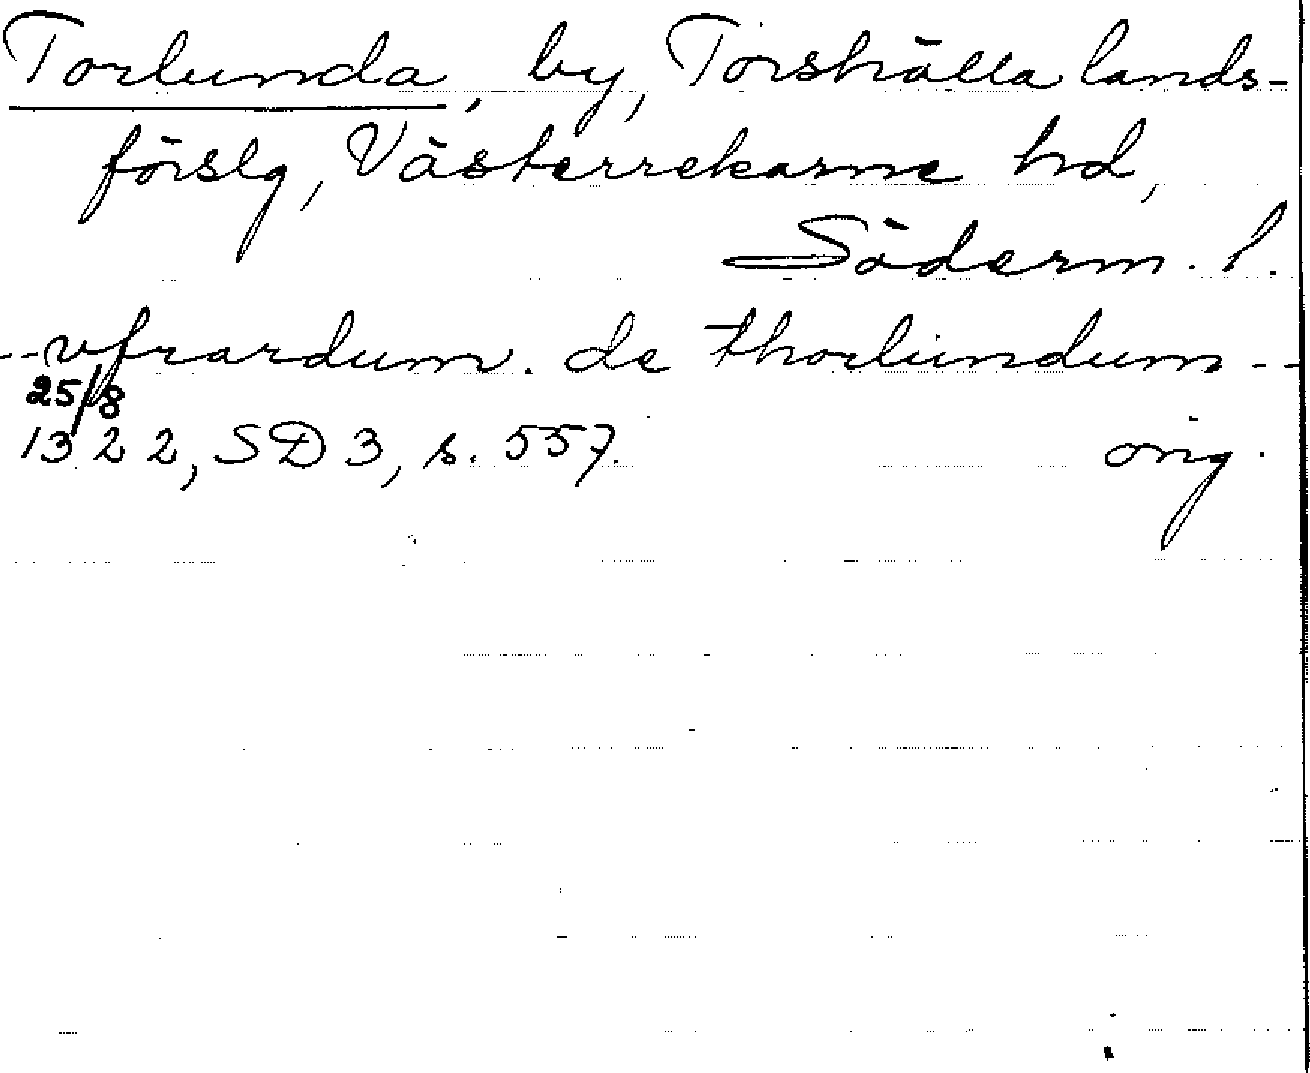 Torlunda, by, Torshälla lands-
förslg, Västerrekarne hd,
Söderm. l.
--vfrardum. de thorlundum--
25/8
1322, SD 3, s. 557. orig.